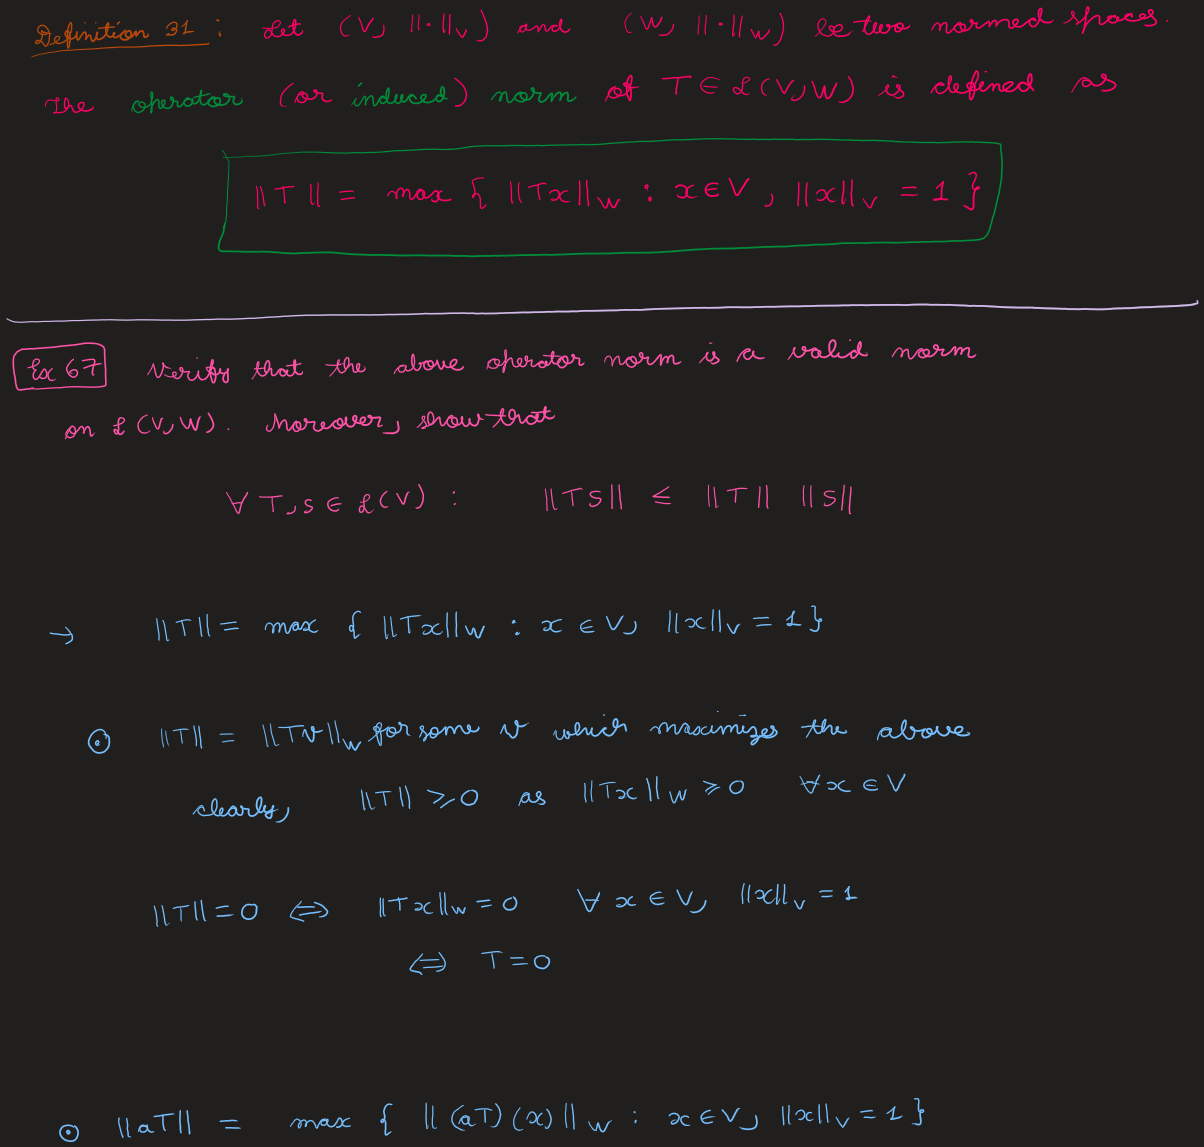 Definition 31 : Let (V, ||·||_V) and (W, ||·||_W) be two normed spaces.
The operator (or induced) norm of T ∈ ℒ(V,W) is defined as
||T|| = max { ||Tx||_W : x ∈ V, ||x||_V = 1 }
Ex 67 Verify that the above operator norm is a valid norm
on ℒ(V,W). Moreover, show that
∀ T,S ∈ ℒ(V) : ||TS|| ≤ ||T|| ||S||
→ ||T|| = max { ||Tx||_W : x ∈ V, ||x||_V = 1 }
⊙ ||T|| = ||Tv||_W for some v which maximizes the above
clearly, ||T|| ≥ 0 as ||Tx||_W ≥ 0 ∀ x ∈ V
||T|| = 0 ⇔ ||Tx||_W = 0 ∀ x ∈ V, ||x||_V = 1
⇔ T = 0
⊙ ||aT|| = max { ||(aT)(x)||_W : x ∈ V, ||x||_V = 1 }